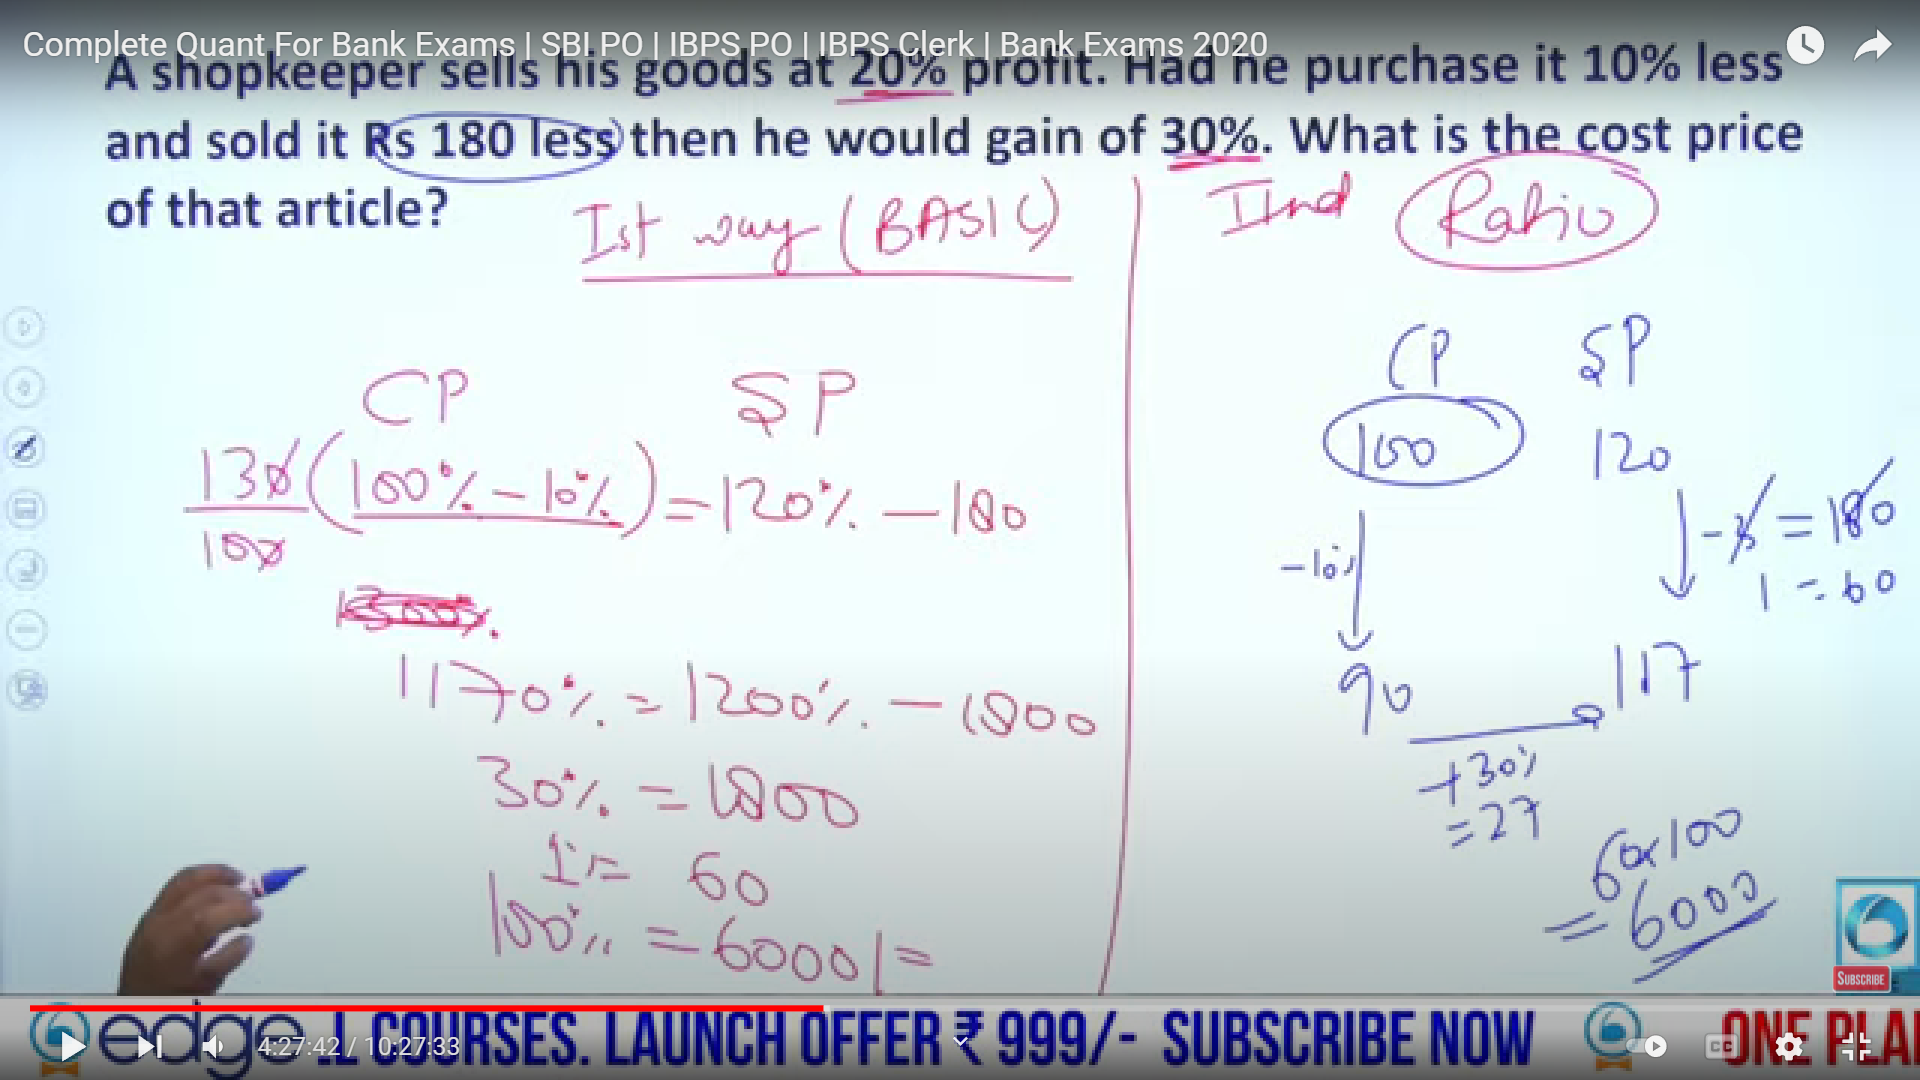 Complete Quant For Bank Exams | SBI PO | IBPS PO | IBPS Clerk | Bank Exams 2020
A shopkeeper sells his goods at 20% profit. Had he purchase it 10% less
and sold it Rs 180 less then he would gain of 30%. What is the cost price
of that article?
Ist way (BASIC)
CP SP
130/100 (100% - 10%) = 120% - 180
1170% = 1200% - 1800
30% = 1800
1% = 60
100% = 6000/=
IInd Ratio
CP SP
100 120
-10% -3 = 180
1 = 60
90 117
+30%
= 27
60x100
= 6000
SUBSCRIBE
edge
LL COURSES. LAUNCH OFFER ₹ 999/- SUBSCRIBE NOW
ONE PLA
4:27:42 / 10:27:33
CC